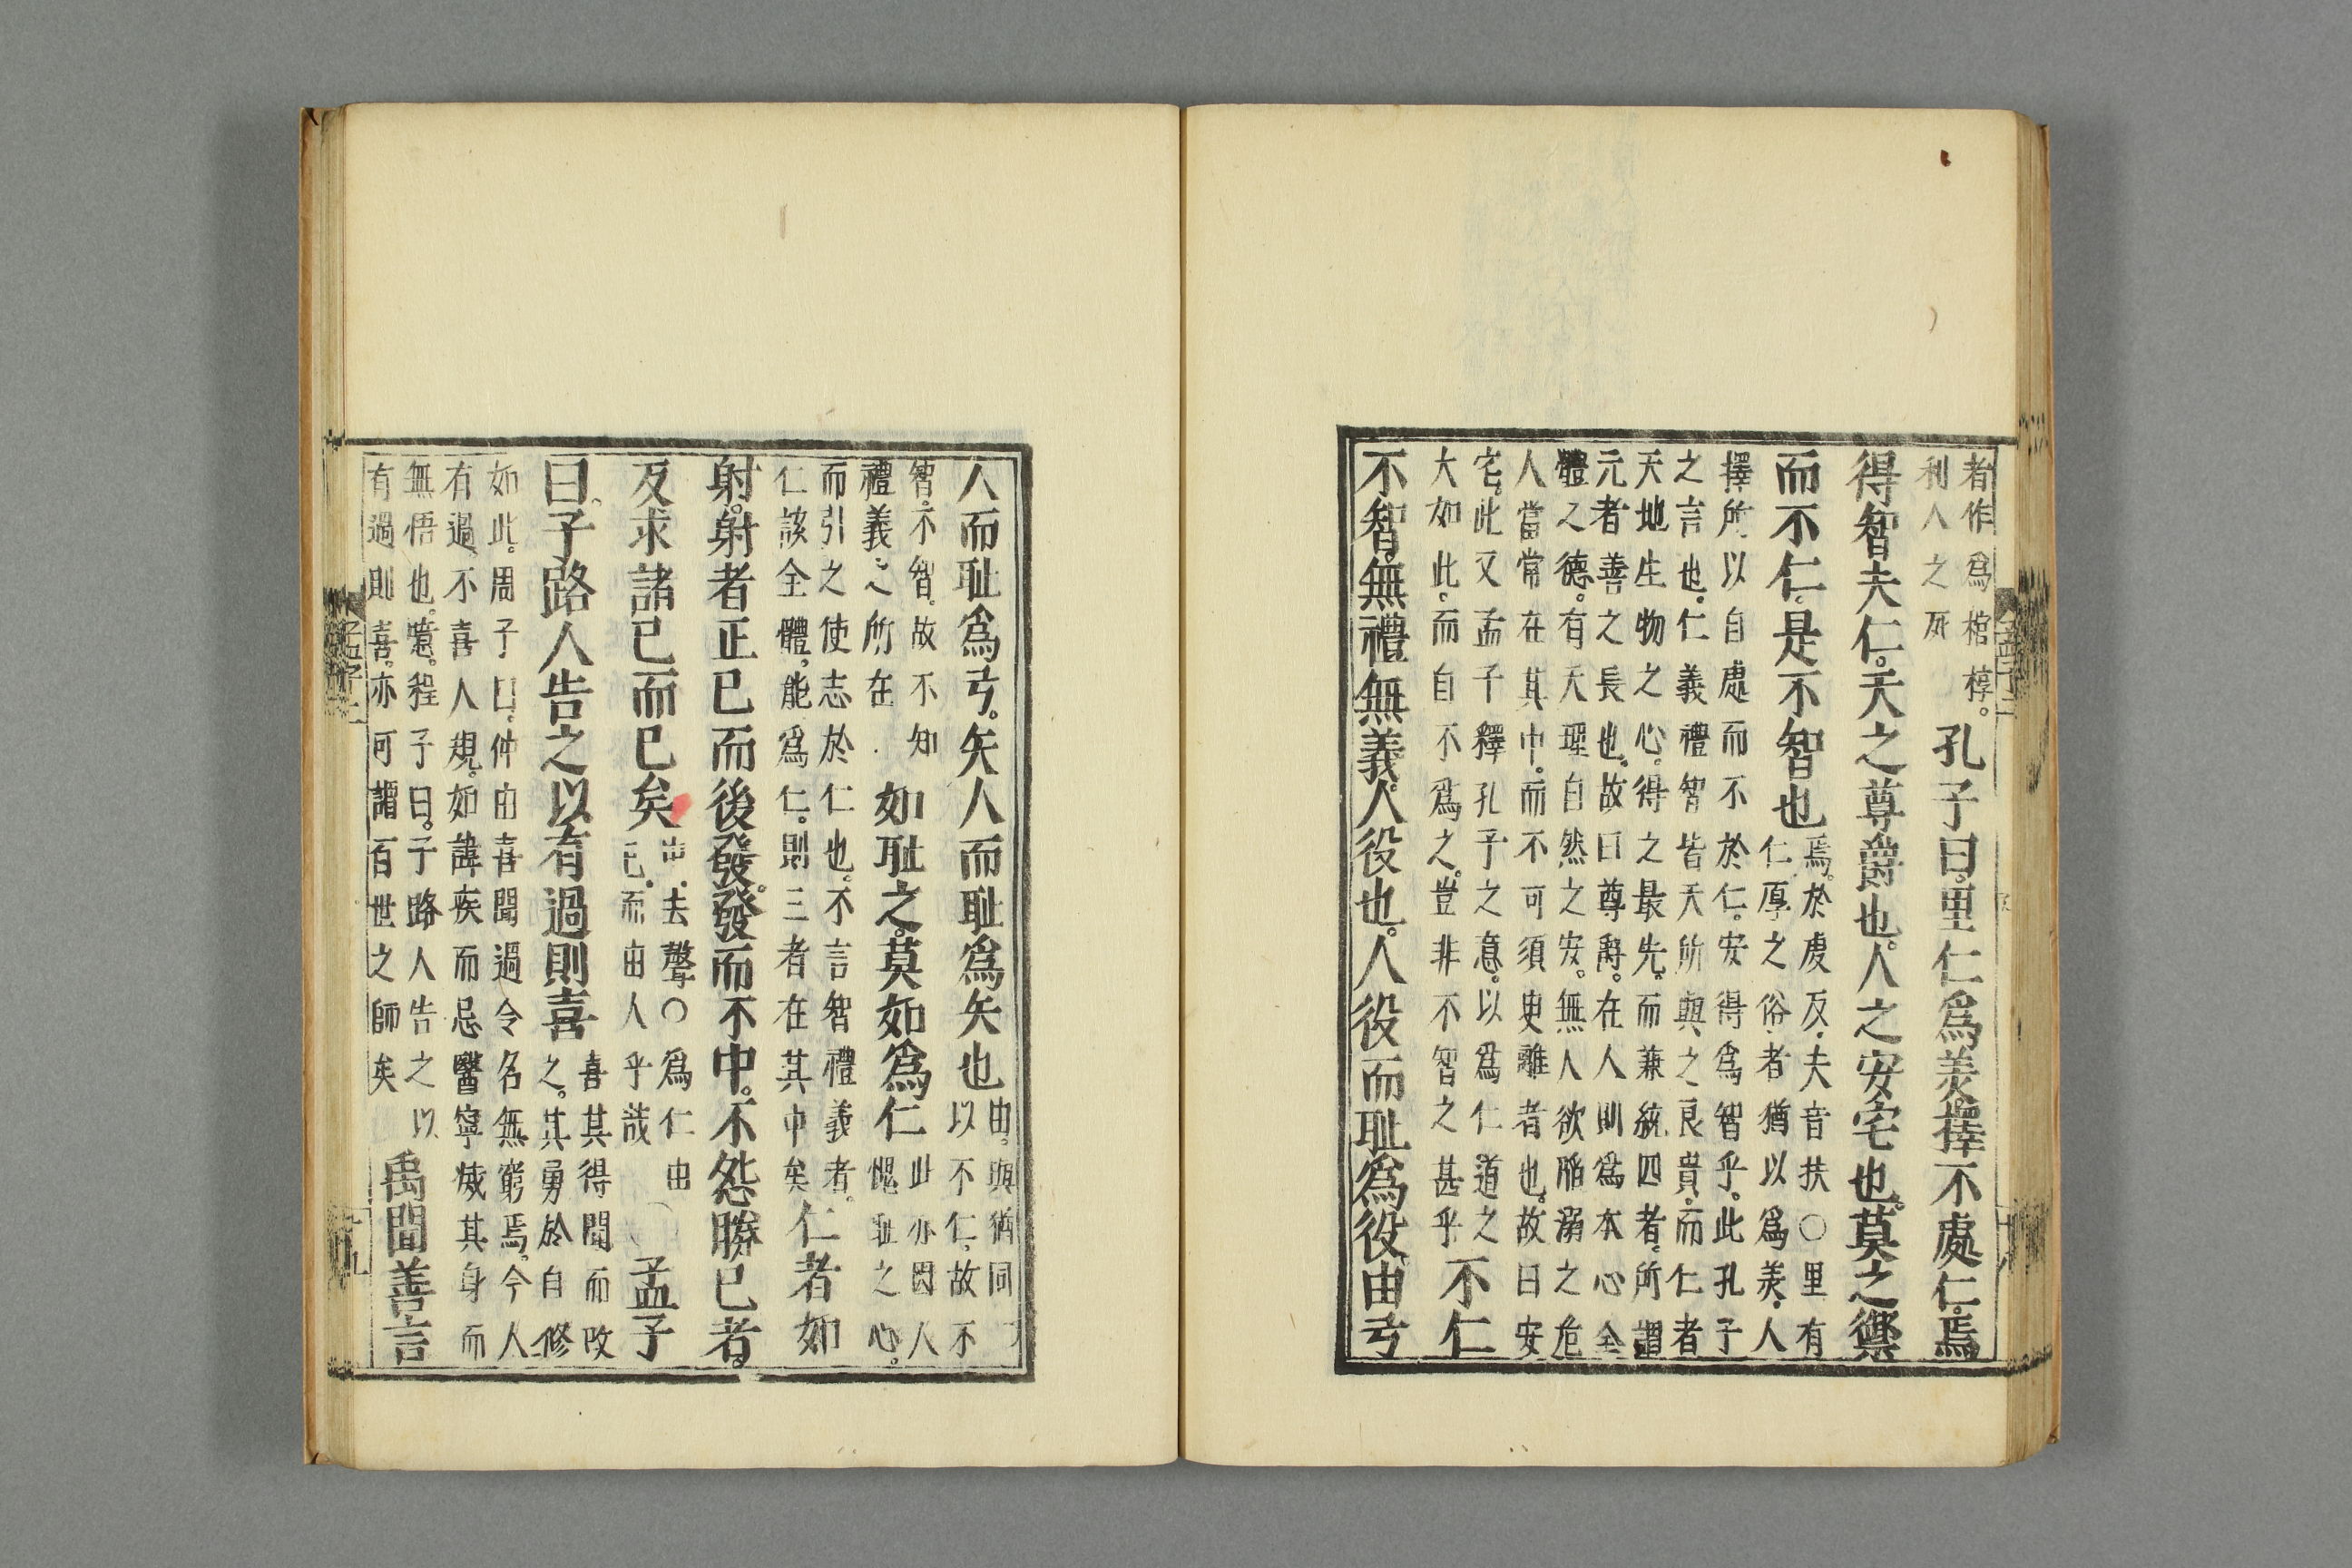 者作爲棺椁。
利人之死
孔子曰。里仁爲美。擇不處仁。焉
得智。夫仁。天之尊爵也。人之安宅也。莫之禦
而不仁。是不智也
焉。於虔反。夫音扶○里有
仁厚之俗者猶以爲美。人
擇所以自處而不於仁。安得爲智乎。此孔子
之言也。仁義禮智皆天所與之良貴。而仁者
天地生物之心。得之最先。而兼統四者。所謂
元者善之長也。故曰尊爵。在人則爲本心全
體之德。有天理自然之安。無人欲陷溺之危
人當常在其中。而不可須臾離者也。故曰安
宅。此又孟子釋孔子之意。以爲仁道之
大如此。而自不爲之。豈非不智之甚乎
不仁
不智。無禮無義。人役也。人役而耻爲役。由弓
孟子二
十八
人而耻爲弓。矢人而耻爲矢也
由。與猶同
以不仁。故不
智。不智。故不知
禮義之所在
如耻之。莫如爲仁
此亦因人
愧耻之心。
而引之使志於仁也。不言智禮義者。
仁該全體。能爲仁。則三者在其中矣
仁者如
射。射者正已而後發。發而不中。不怨勝已者。
反求諸已而已矣
中。去聲○爲仁由
已。而由人乎哉
孟子
曰。子路人告之以有過則喜
喜其得聞而改
之。其勇於自修
如此。周子曰。仲由喜聞過令名無窮焉。今人
有過。不喜人規。如諱疾而忌醫寧滅其身而
無悟也。噫。程子曰。子路人告之以
有過則喜。亦可謂百世之師矣
禹聞善言
孟子二
十九